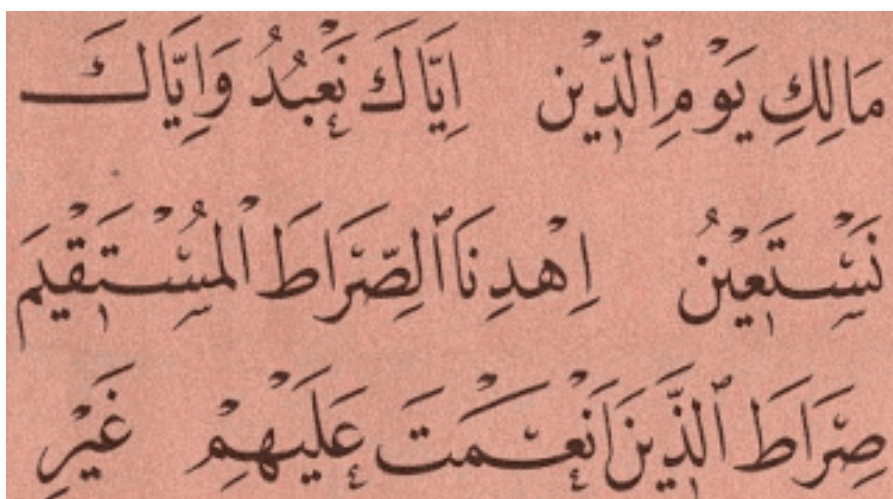 مَالِكِ يَوْمِ ٱلدِّيْن اِيَّاكَ نَعْبُدُ وَاِيَّاكَ
نَسْتَعِيْنُ اِهْدِنَا ٱلصِّرَاطَ الْمُسْتَقِيْمَ
صِرَاطَ ٱلَّذِيْنَ اَنْعَمْتَ عَلَيْهِمْ غَيْرِ